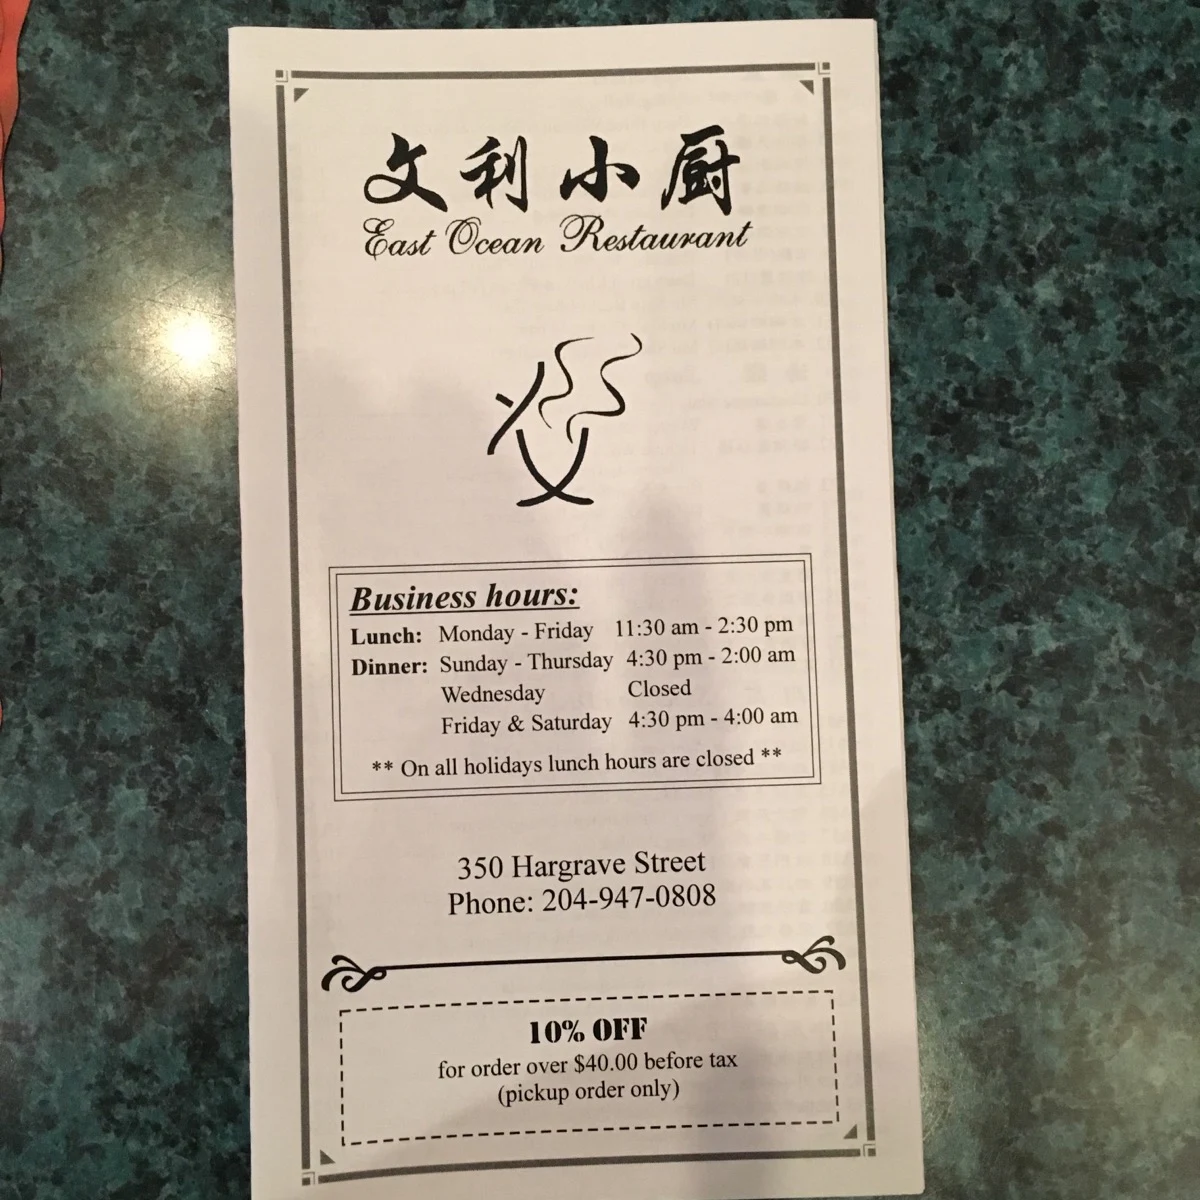 文利小厨
East Ocean Restaurant
Business hours:
Lunch: Monday - Friday 11:30 am - 2:30 pm
Dinner: Sunday - Thursday 4:30 pm - 2:00 am
Wednesday Closed
Friday & Saturday 4:30 pm - 4:00 am
** On all holidays lunch hours are closed **
350 Hargrave Street
Phone: 204-947-0808
10% OFF
for order over $40.00 before tax
(pickup order only)